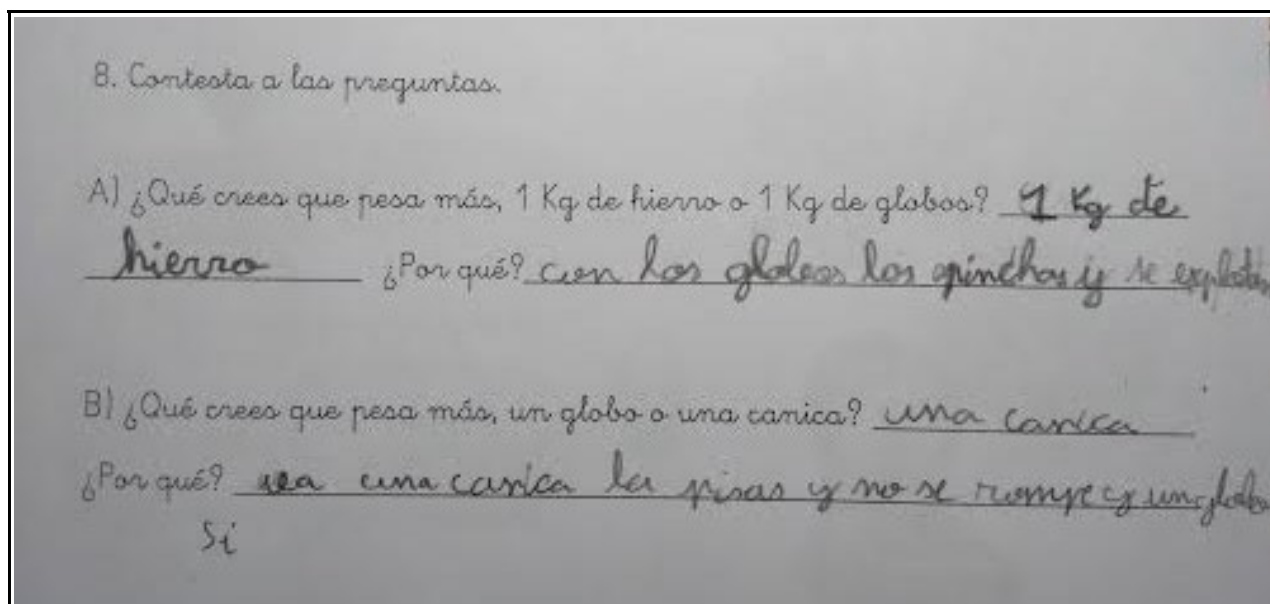 8. Contesta a las preguntas.
A) ¿Qué crees que pesa más, 1 Kg de hierro o 1 Kg de globos? 1 Kg de
hierro ¿Por qué? con los globos los pinchas y se explotan
B) ¿Qué crees que pesa más, un globo o una canica? una canica
¿Por qué? una canica la pisas y no se rompe y un globo
Si